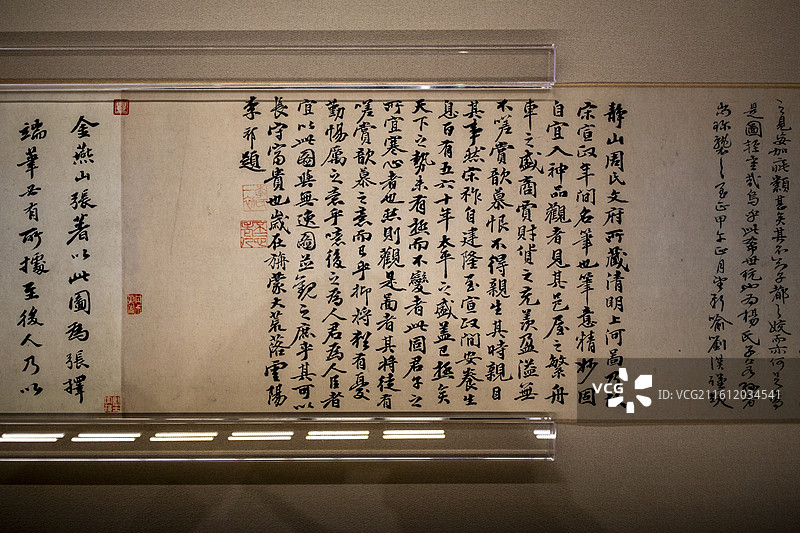 是圖輕重哉烏乎此希世玩也為楊氏子若孫者
尚珍襲之至正甲午正月望新喻劉漢謹跋
靜山周氏文府所藏清明上河啚乃故
宋宣政年間名筆也筆意精妙固
自宜入神品觀者見其邑屋之繁舟
車之盛商賈財貨之充羨盈溢無
不嗟賞歆慕恨不得親生其時親目
其事然宋祚自建隆至宣政間安養生
息百有五六十年太平之盛蓋已極矣
天下之勢未有極而不變者此固君子之
所宜寒心者也然則觀是啚者其將徒有
嗟賞歆慕之意而已乎抑將猶有憂
勤惕厲之意乎噫後之為人君為人臣者
宜以此圖與無逸圖並觀之庶乎其可以
長守富貴也歲在旃蒙大荒落雲陽
李祁題
金燕山張著以此圖為張擇
端筆必有所據至後人乃以
VCG
VCG211612034541